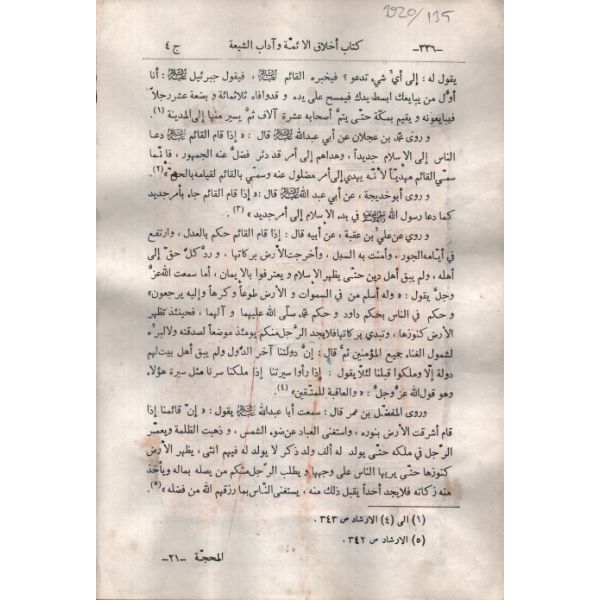 1920/135
-٣٣٦- كتاب أخلاق الأئمّة وآداب الشيعة ج ٤
يقول له : إلى أيّ شيء تدعو ؟ فيخبره القائم عليه السلام ، فيقول جبرئيل عليه السلام : أنا
أوّل من يبايعك ابسط يدك فيمسح على يده و قد وافاه ثلاثمائة و بضعة عشر رجلاً
فيبايعونه و يقيم بمكّة حتّى يتمّ أصحابه عشرة آلاف ثمّ يسير منها إلى المدينة (١).
و روى محمّد بن عجلان عن أبي عبدالله عليه السلام قال : « إذا قام القائم عليه السلام دعا
الناس إلى الإسلام جديداً ، وهداهم إلى أمر قد دثر فضلّ عنه الجمهور ، فانّما
سمّي القائم مهديّاً لأنّه يهدي إلى أمر مضلول عنه وسمّي بالقائم لقيامه بالحقّ »(٢).
و روى أبو خديجة ، عن أبي عبد الله عليه السلام قال : « إذا قام القائم جاء بأمر جديد
كما دعا رسول الله صلى الله عليه وآله في بدء الإسلام إلى أمر جديد » (٣).
و روى عن عليّ بن عقبة ، عن أبيه قال : إذا قام القائم حكم بالعدل ، وارتفع
في أيّامه الجور ، وأمنت به السبل ، وأخرجت الأرض بركاتها ، و ردّ كلّ حقّ إلى
أهله ، ولم يبق أهل دين حتّى يظهر الإسلام و يعترفوا بالإيمان ، أما سمعت الله عزّ
وجلّ يقول : « وله أسلم من في السموات و الأرض طوعاً وكرهاً وإليه يرجعون»
و حكم في الناس بحكم داود و حكم محمّد صلّى الله عليهما و آلهما ، فحينئذ تظهر
الأرض كنوزها ، وتبدي بركاتها فلا يجد الرّجل منكم يومئذ موضعاً لصدقته ولا لبرّه
لشمول الغناء جميع المؤمنين ثمّ قال : إنّ دولتنا آخر الدّول ولم يبق أهل بيت لهم
دولة إلّا وملكوا قبلنا لئلّا يقول : إذا رأوا سيرتنا إذا ملكنا سرنا مثل سيرة هؤلاء
وهو قول الله عزّ وجلّ : « والعاقبة للمتّقين » (٤).
وروى المفضّل بن عمر قال : سمعت أبا عبدالله عليه السلام يقول : « إنّ قائمنا إذا
قام أشرقت الأرض بنوره ، واستغنى العباد عن ضوء الشمس ، و ذهبت الظلمة ويعمّر
الرّجل في ملكه حتّى يولد له ألف ولد ذكر لا يولد له فيهم انثى ، يظهر الأرض
كنوزها حتّى يريها الناس على وجهها و يطلب الرّجل منكم من يصله بماله ويأخذ
منه زكاته فلا يجد أحداً يقبل ذلك منه ، يستغنى الناس بما رزقهم الله من فضله »(٥).
(١) الى (٤) الارشاد ص ٣٤٣ .
(٥) الارشاد ص ٣٤٢ .
المحجّة -٢١-